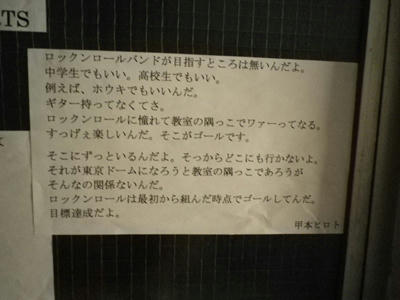 LTS
ロックンロールバンドが目指すところは無いんだよ。
中学生でもいい。高校生でもいい。
例えば、ホウキでもいいんだ。
ギター持ってなくてさ。
ロックンロールに憧れて教室の隅っこでワァーってなる。
すっげぇ楽しいんだ。そこがゴールです。
そこにずっといるんだよ。そっからどこにも行かないよ。
それが東京ドームになろうと教室の隅っこであろうが
そんなの関係ないんだ。
ロックンロールは最初から組んだ時点でゴールしてんだ。
目標達成だよ。
甲本ヒロト